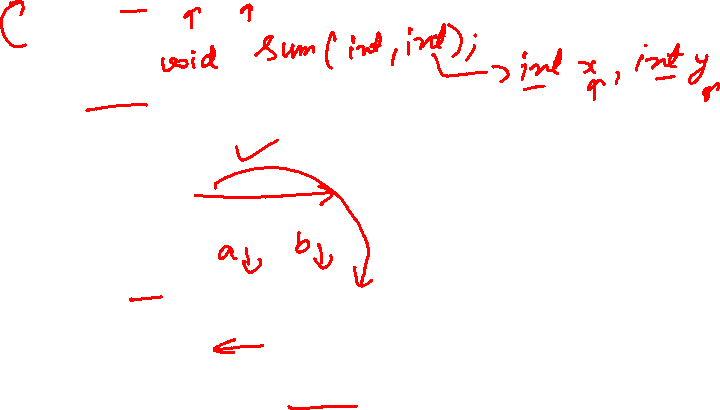 C void sum(int, int); int x, int y
a b